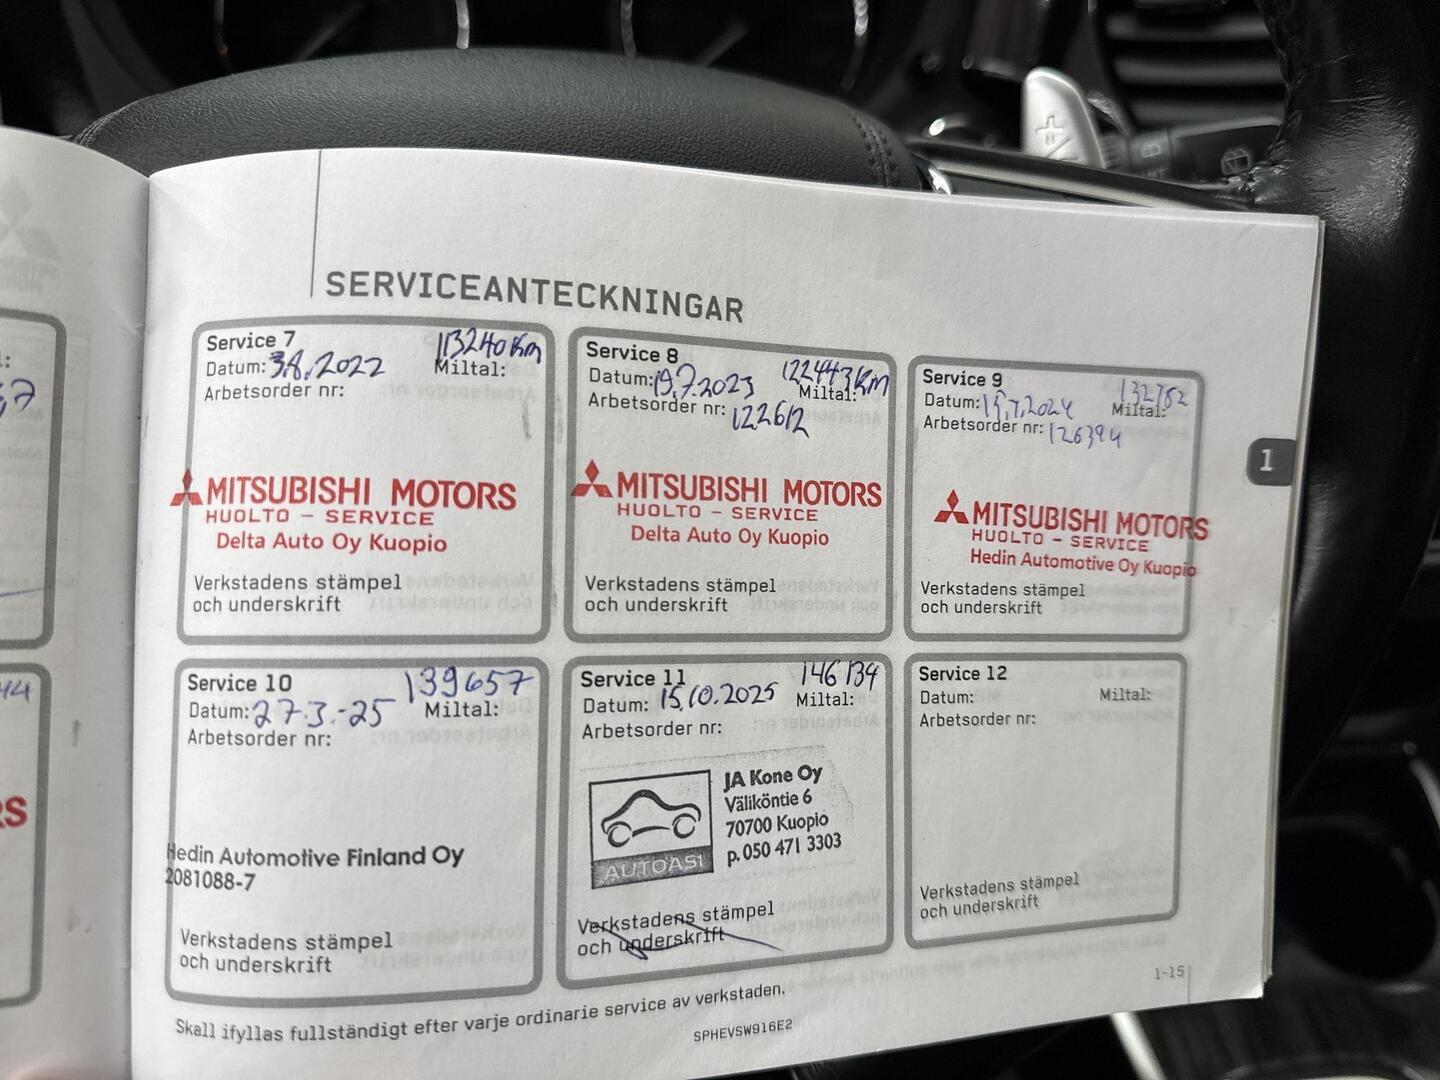 SERVICEANTECKNINGAR
Service 7
113240 Km
Datum: 3.8.2022
Miltal:
Arbetsorder nr:
MITSUBISHI MOTORS
HUOLTO - SERVICE
Delta Auto Oy Kuopio
Verkstadens stämpel
och underskrift
Service 8
122443 Km
Datum: 19.7.2023
Miltal:
Arbetsorder nr: 122612
MITSUBISHI MOTORS
HUOLTO - SERVICE
Delta Auto Oy Kuopio
Verkstadens stämpel
och underskrift
Service 9
132782
Datum: 15.7.2024
Miltal:
Arbetsorder nr: 126394
MITSUBISHI MOTORS
HUOLTO - SERVICE
Hedin Automotive Oy Kuopio
Verkstadens stämpel
och underskrift
1
Service 10
139657
Datum: 27.3.-25
Miltal:
Arbetsorder nr:
Hedin Automotive Finland Oy
2081088-7
Verkstadens stämpel
och underskrift
Service 11
146134
Datum: 15.10.2025
Miltal:
Arbetsorder nr:
AUTOASI
JA Kone Oy
Väliköntie 6
70700 Kuopio
p. 050 471 3303
Verkstadens stämpel
och underskrift
Service 12
Datum:
Miltal:
Arbetsorder nr:
Verkstadens stämpel
och underskrift
1-15
Skall ifyllas fullständigt efter varje ordinarie service av verkstaden.
SPHEVSW916E2